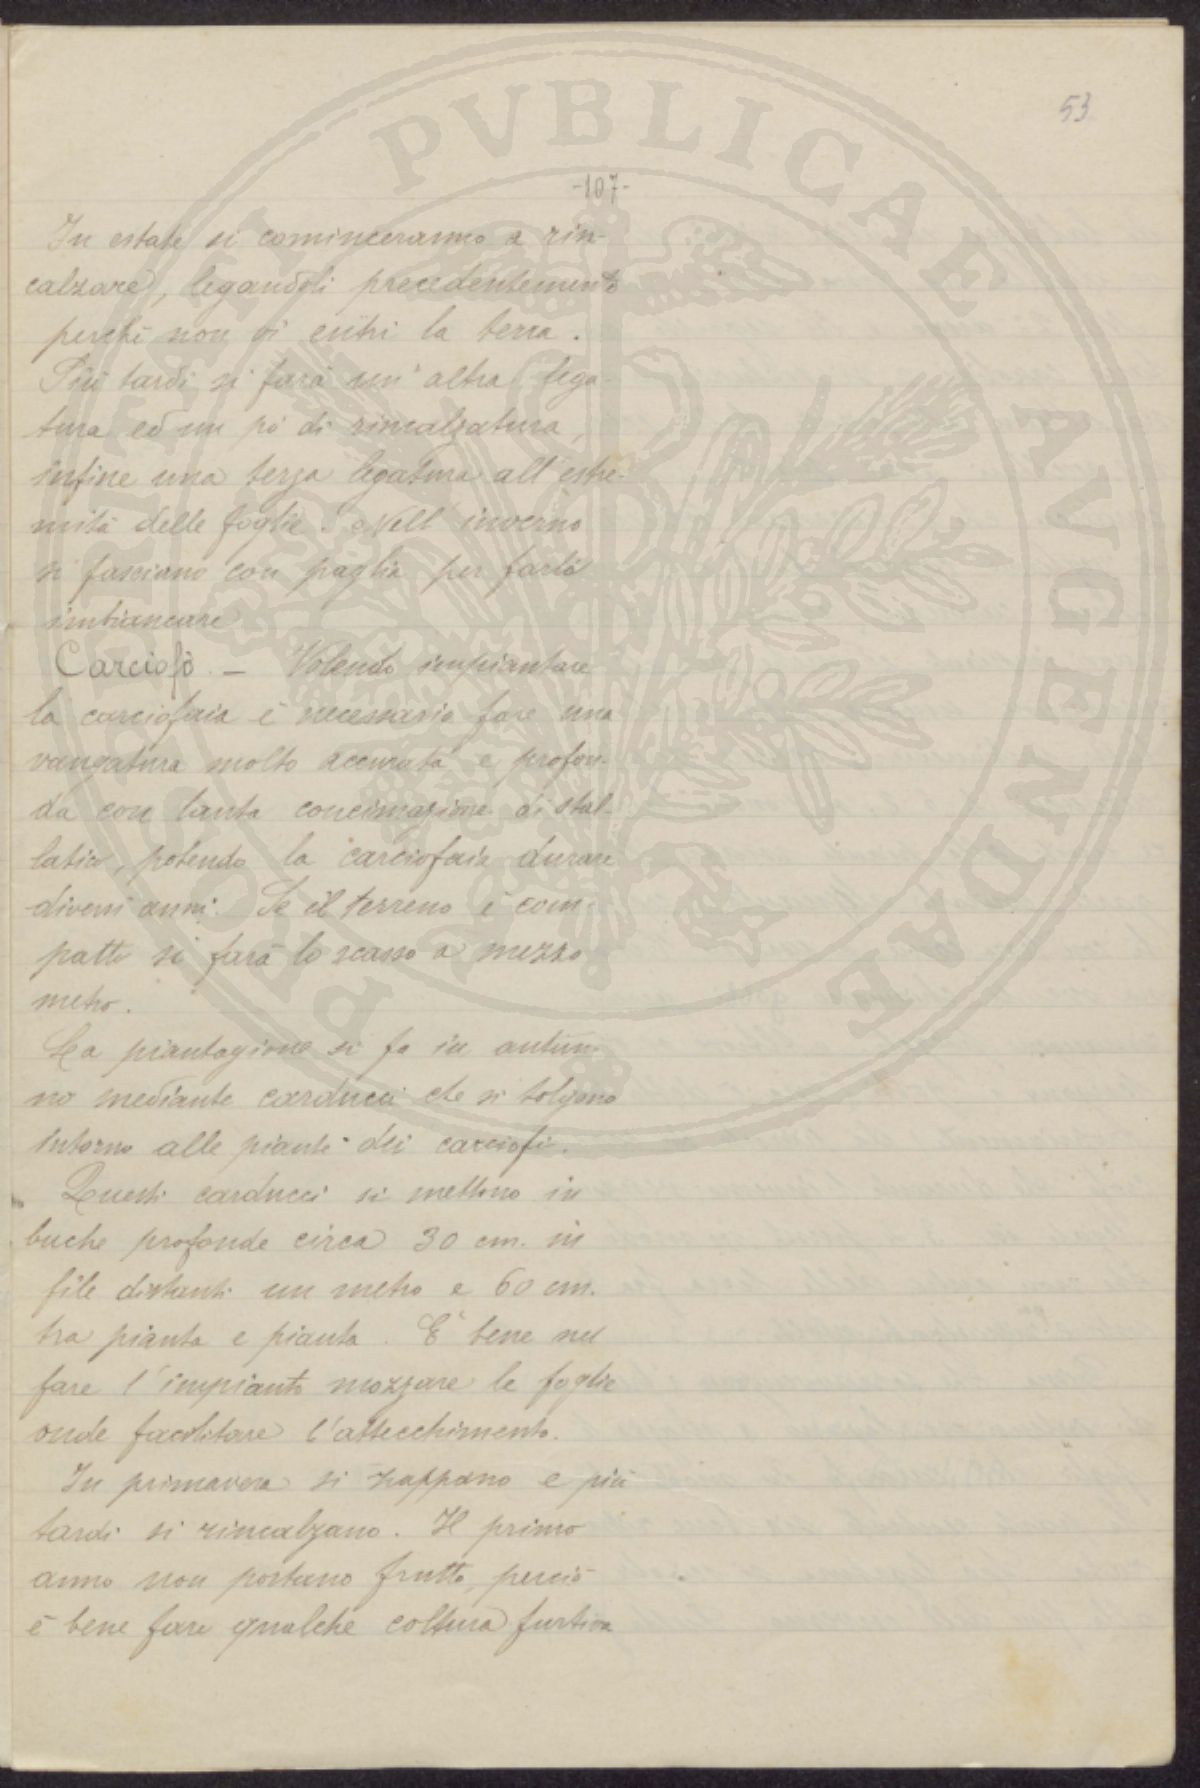 53
-107-
In estate si cominceranno a rin-
calzare, legandoli precedentemente
perchè non vi entri la terra.
Più tardi si farà un'altra lega-
tura ed un pò di rincalzatura,
infine una terza legatura all'estre-
mità delle foglie. Nell'inverno
si fasciano con paglia per farli
imbiancare
Carciofo. - Volendo impiantare
la carciofaia è necessario fare una
vangatura molto accurata e profon-
da con tanta concimazione di stal-
latico, potendo la carciofaia durare
diversi anni. Se il terreno è com-
patto si farà lo scasso a mezzo
metro.
La piantagione si fa in autun-
no mediante carducci che si tolgono
intorno alle piante dei carciofi.
Questi carducci si mettono in
buche profonde circa 30 cm. in
file distanti un metro e 60 cm.
tra pianta e pianta. E' bene nel
fare l'impianto mozzare le foglie
onde facilitare l'attecchimento.
In primavera si zappano e più
tardi si rincalzano. Il primo
anno non portano frutto, perciò
è bene fare qualche coltura furtiva
PROSPERITATI PVBLICAE AVGENDAE